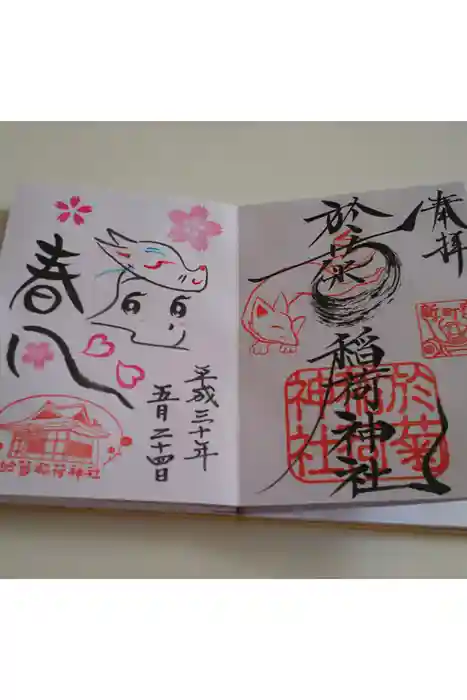 奉拝
於菊
稲荷神社
於菊
稲荷
神社
新町宿
春
平成三十年
五月二十四日
於菊稲荷神社